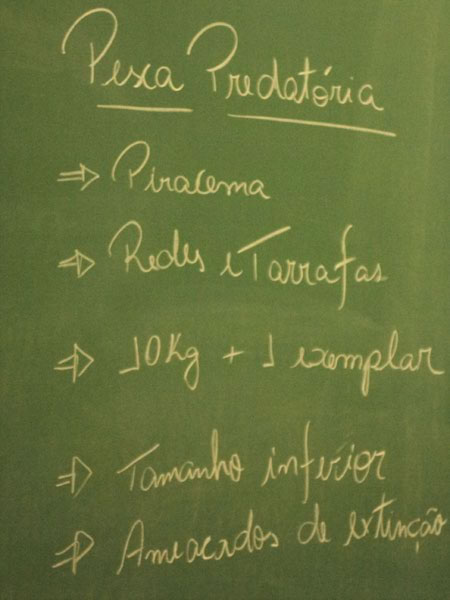 Pesca Predatória
⇒ Piracema
⇒ Redes e Tarrafas
⇒ 10Kg + 1 exemplar
⇒ Tamanho inferior
⇒ Ameacados de extinção